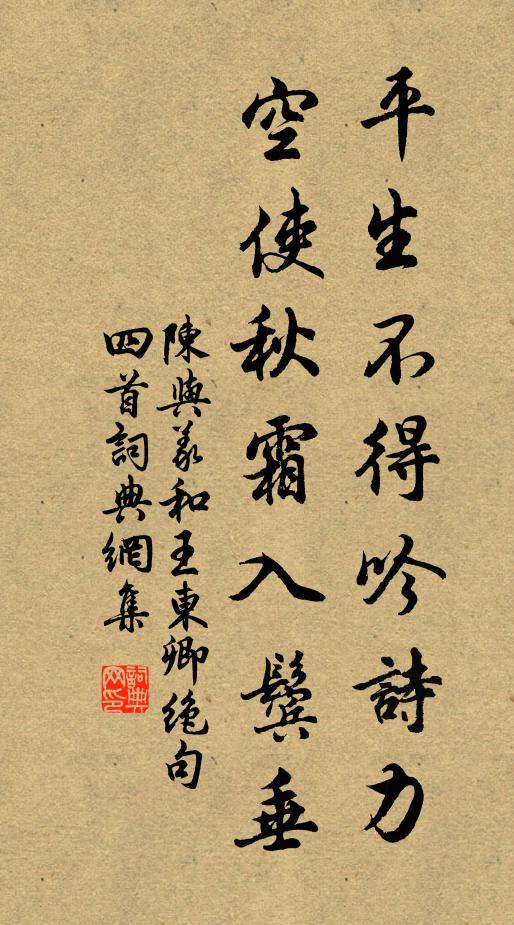 平生不得吟詩力
空使秋霜入鬢垂
陳與義和王東卿絕句
四首詞典網集
詞典
网印